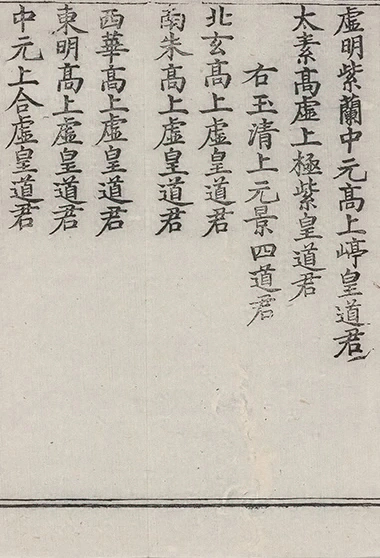 虛明紫蘭中元高上崞皇道君
太素高虛上極紫皇道君
右玉清上元景四道君
北玄高上虛皇道君
南朱高上虛皇道君
西華高上虛皇道君
東明高上虛皇道君
中元上合虛皇道君